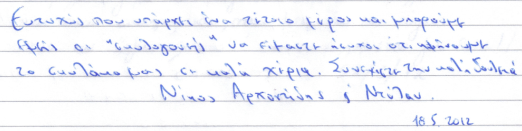 Ευτυχώς που υπάρχει ένα τέτοιο μέρος και μπορούμε
εμείς οι "σκυλογονείς" να είμαστε ήσυχοι ότι αφήνουμε
το σκυλάκο μας σε καλά χέρια. Συνεχίστε την καλή δουλειά
Νίκος Αρχοντίδης & Ντύλαν.
18.5.2012